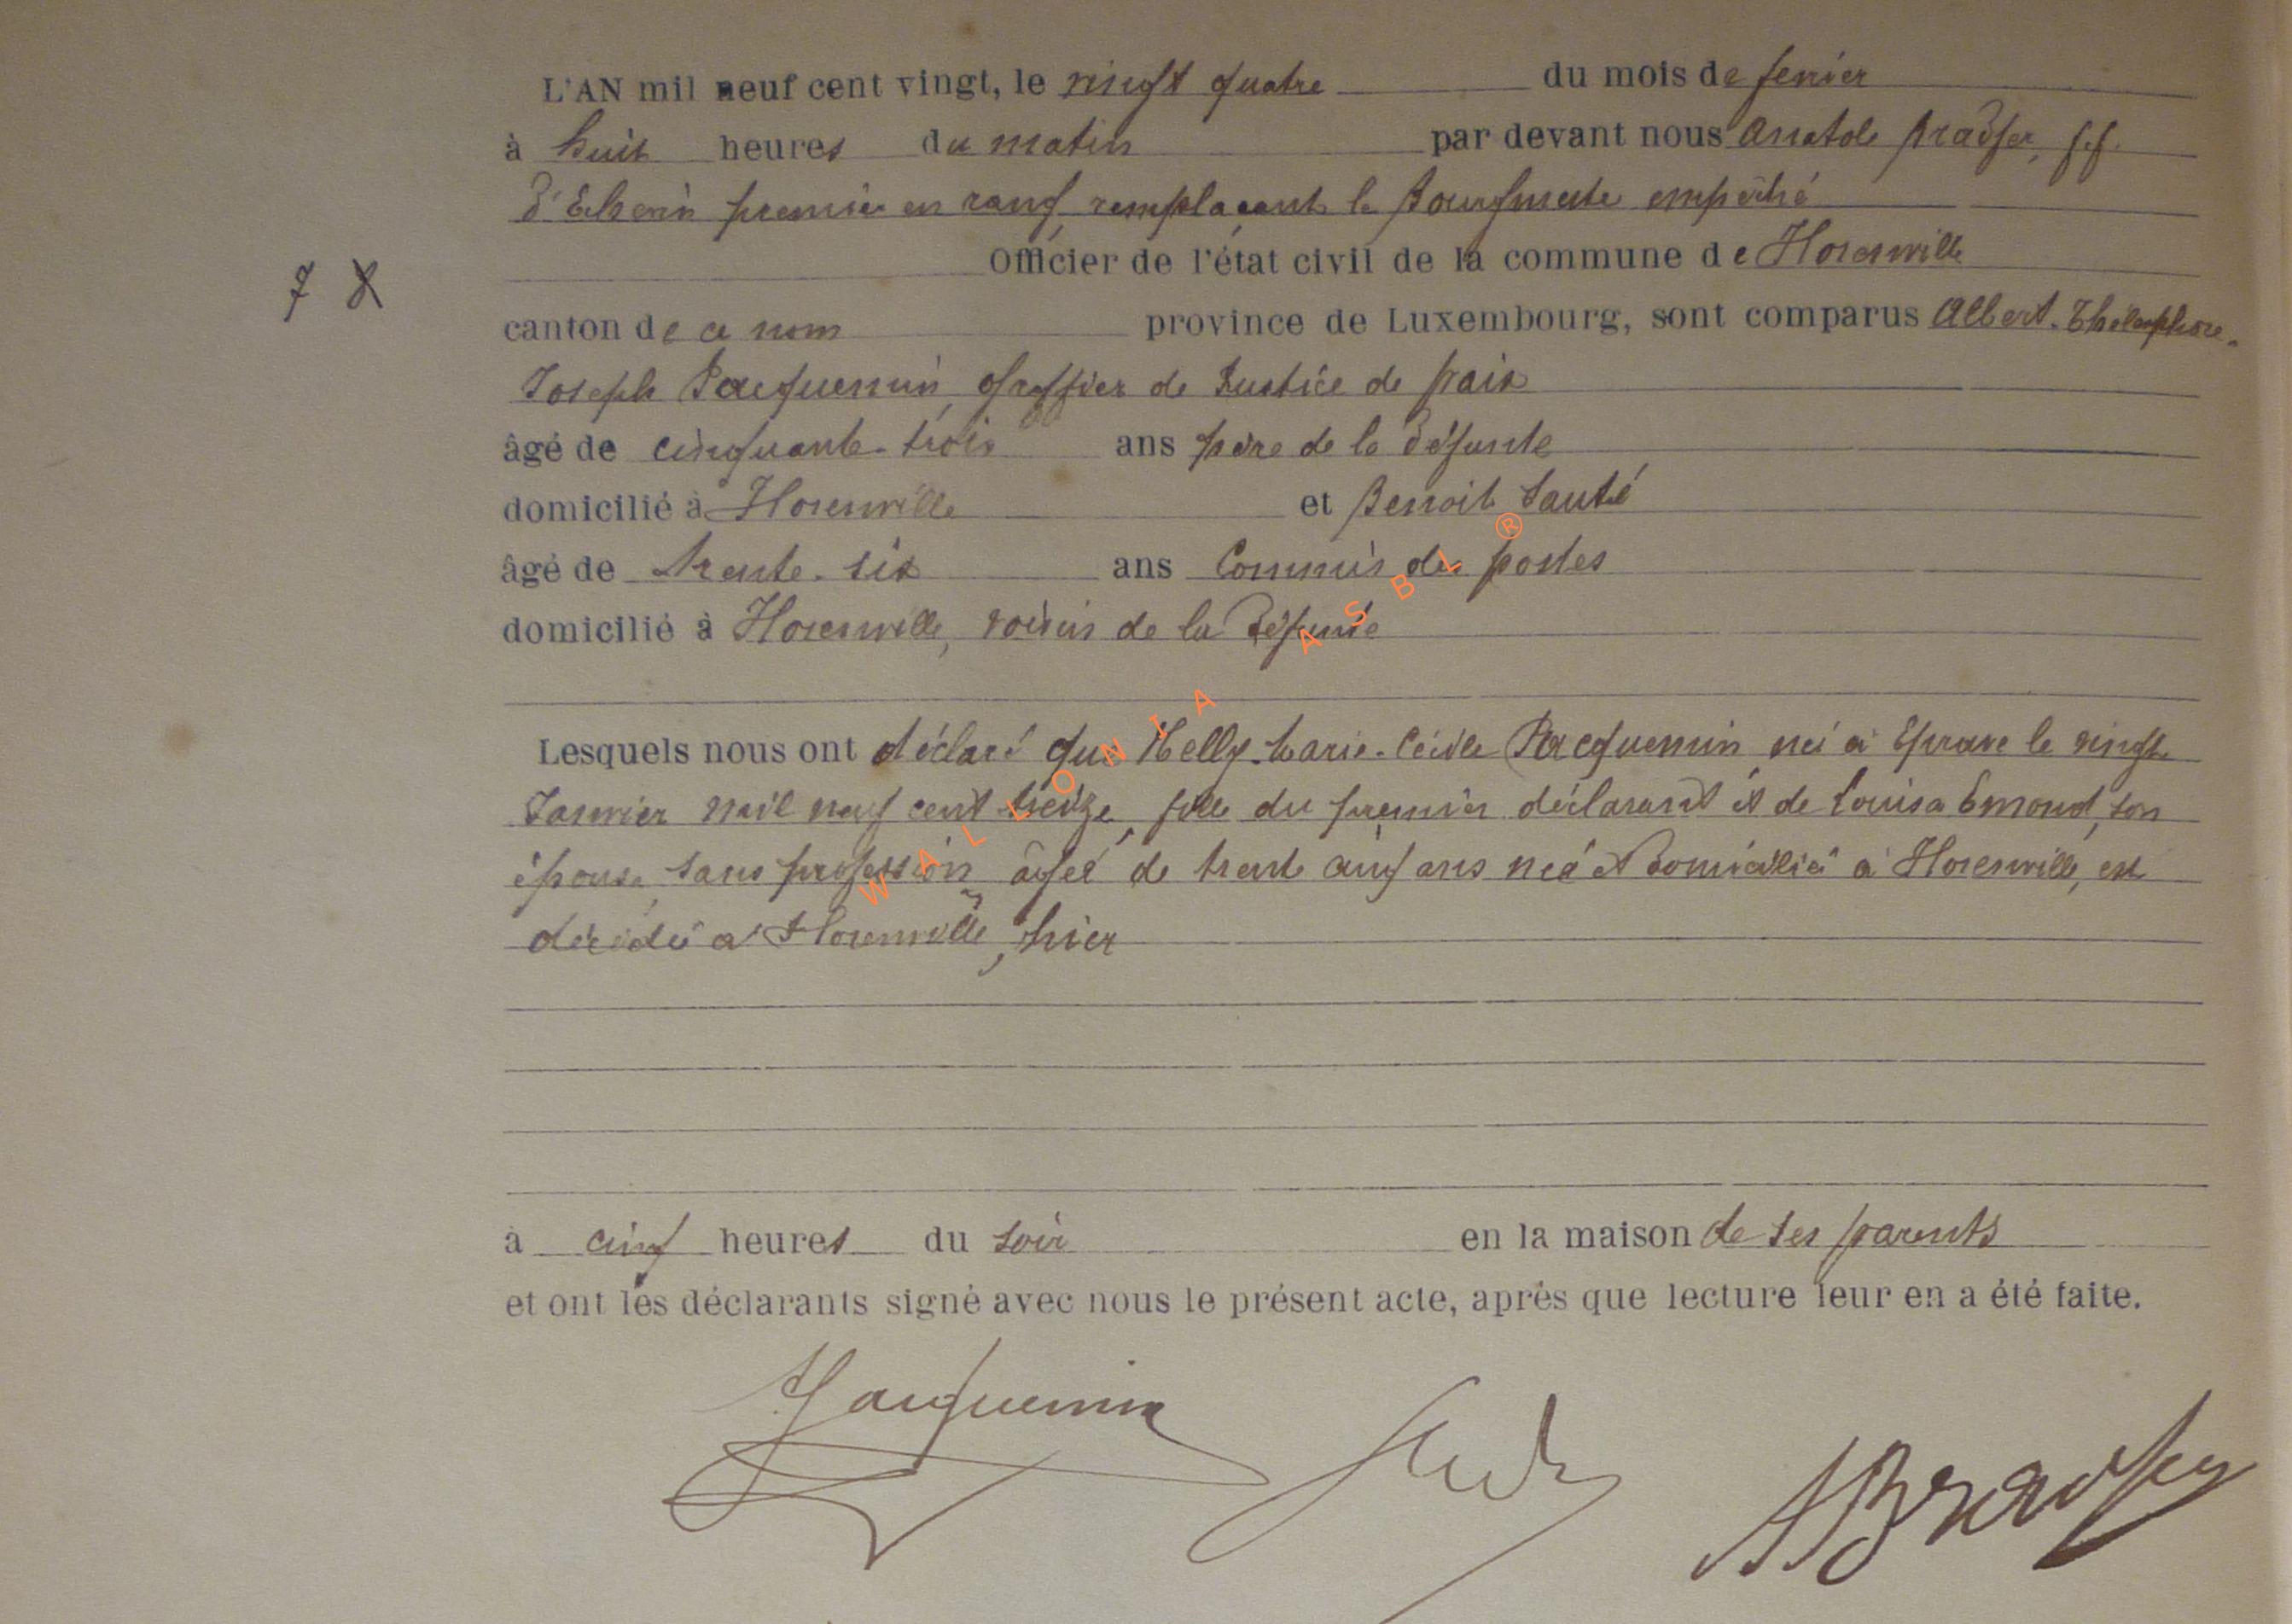 L'AN mil neuf cent vingt, le vingt quatre du mois de fevrier
à huit heures du matin par devant nous Anatole Bradfer, f.f.
d'Echevin premier en rang remplaçant le Bourgmestre empêché
Officier de l'état civil de la commune de Florenville
7 8
canton de ce nom province de Luxembourg, sont comparus Albert-Thélesphore-
Joseph Pacquemin, Greffier de Justice de paix
âgé de cinquante-trois ans père de la défunte
domicilié à Florenville et Benoit
âgé de trente-six ans Commis des postes
domicilié à Florenville, voisin de la défunte
Lesquels nous ont déclaré que Nelly-Marie-Cécile Pacquemin née à Eprave le vingt
Janvier mil neuf cent treize, fille du premier déclarant et de Louisa Emond, son
épouse, sans profession, âgée de trente cinq ans née et domiciliée à Florenville, est
décédée à Florenville, hier
à cinq heures du soir en la maison de ses parents
et ont les déclarants signé avec nous le présent acte, après que lecture leur en a été faite.
Pacquemin ABradfer
WALLONIA ASBL ®